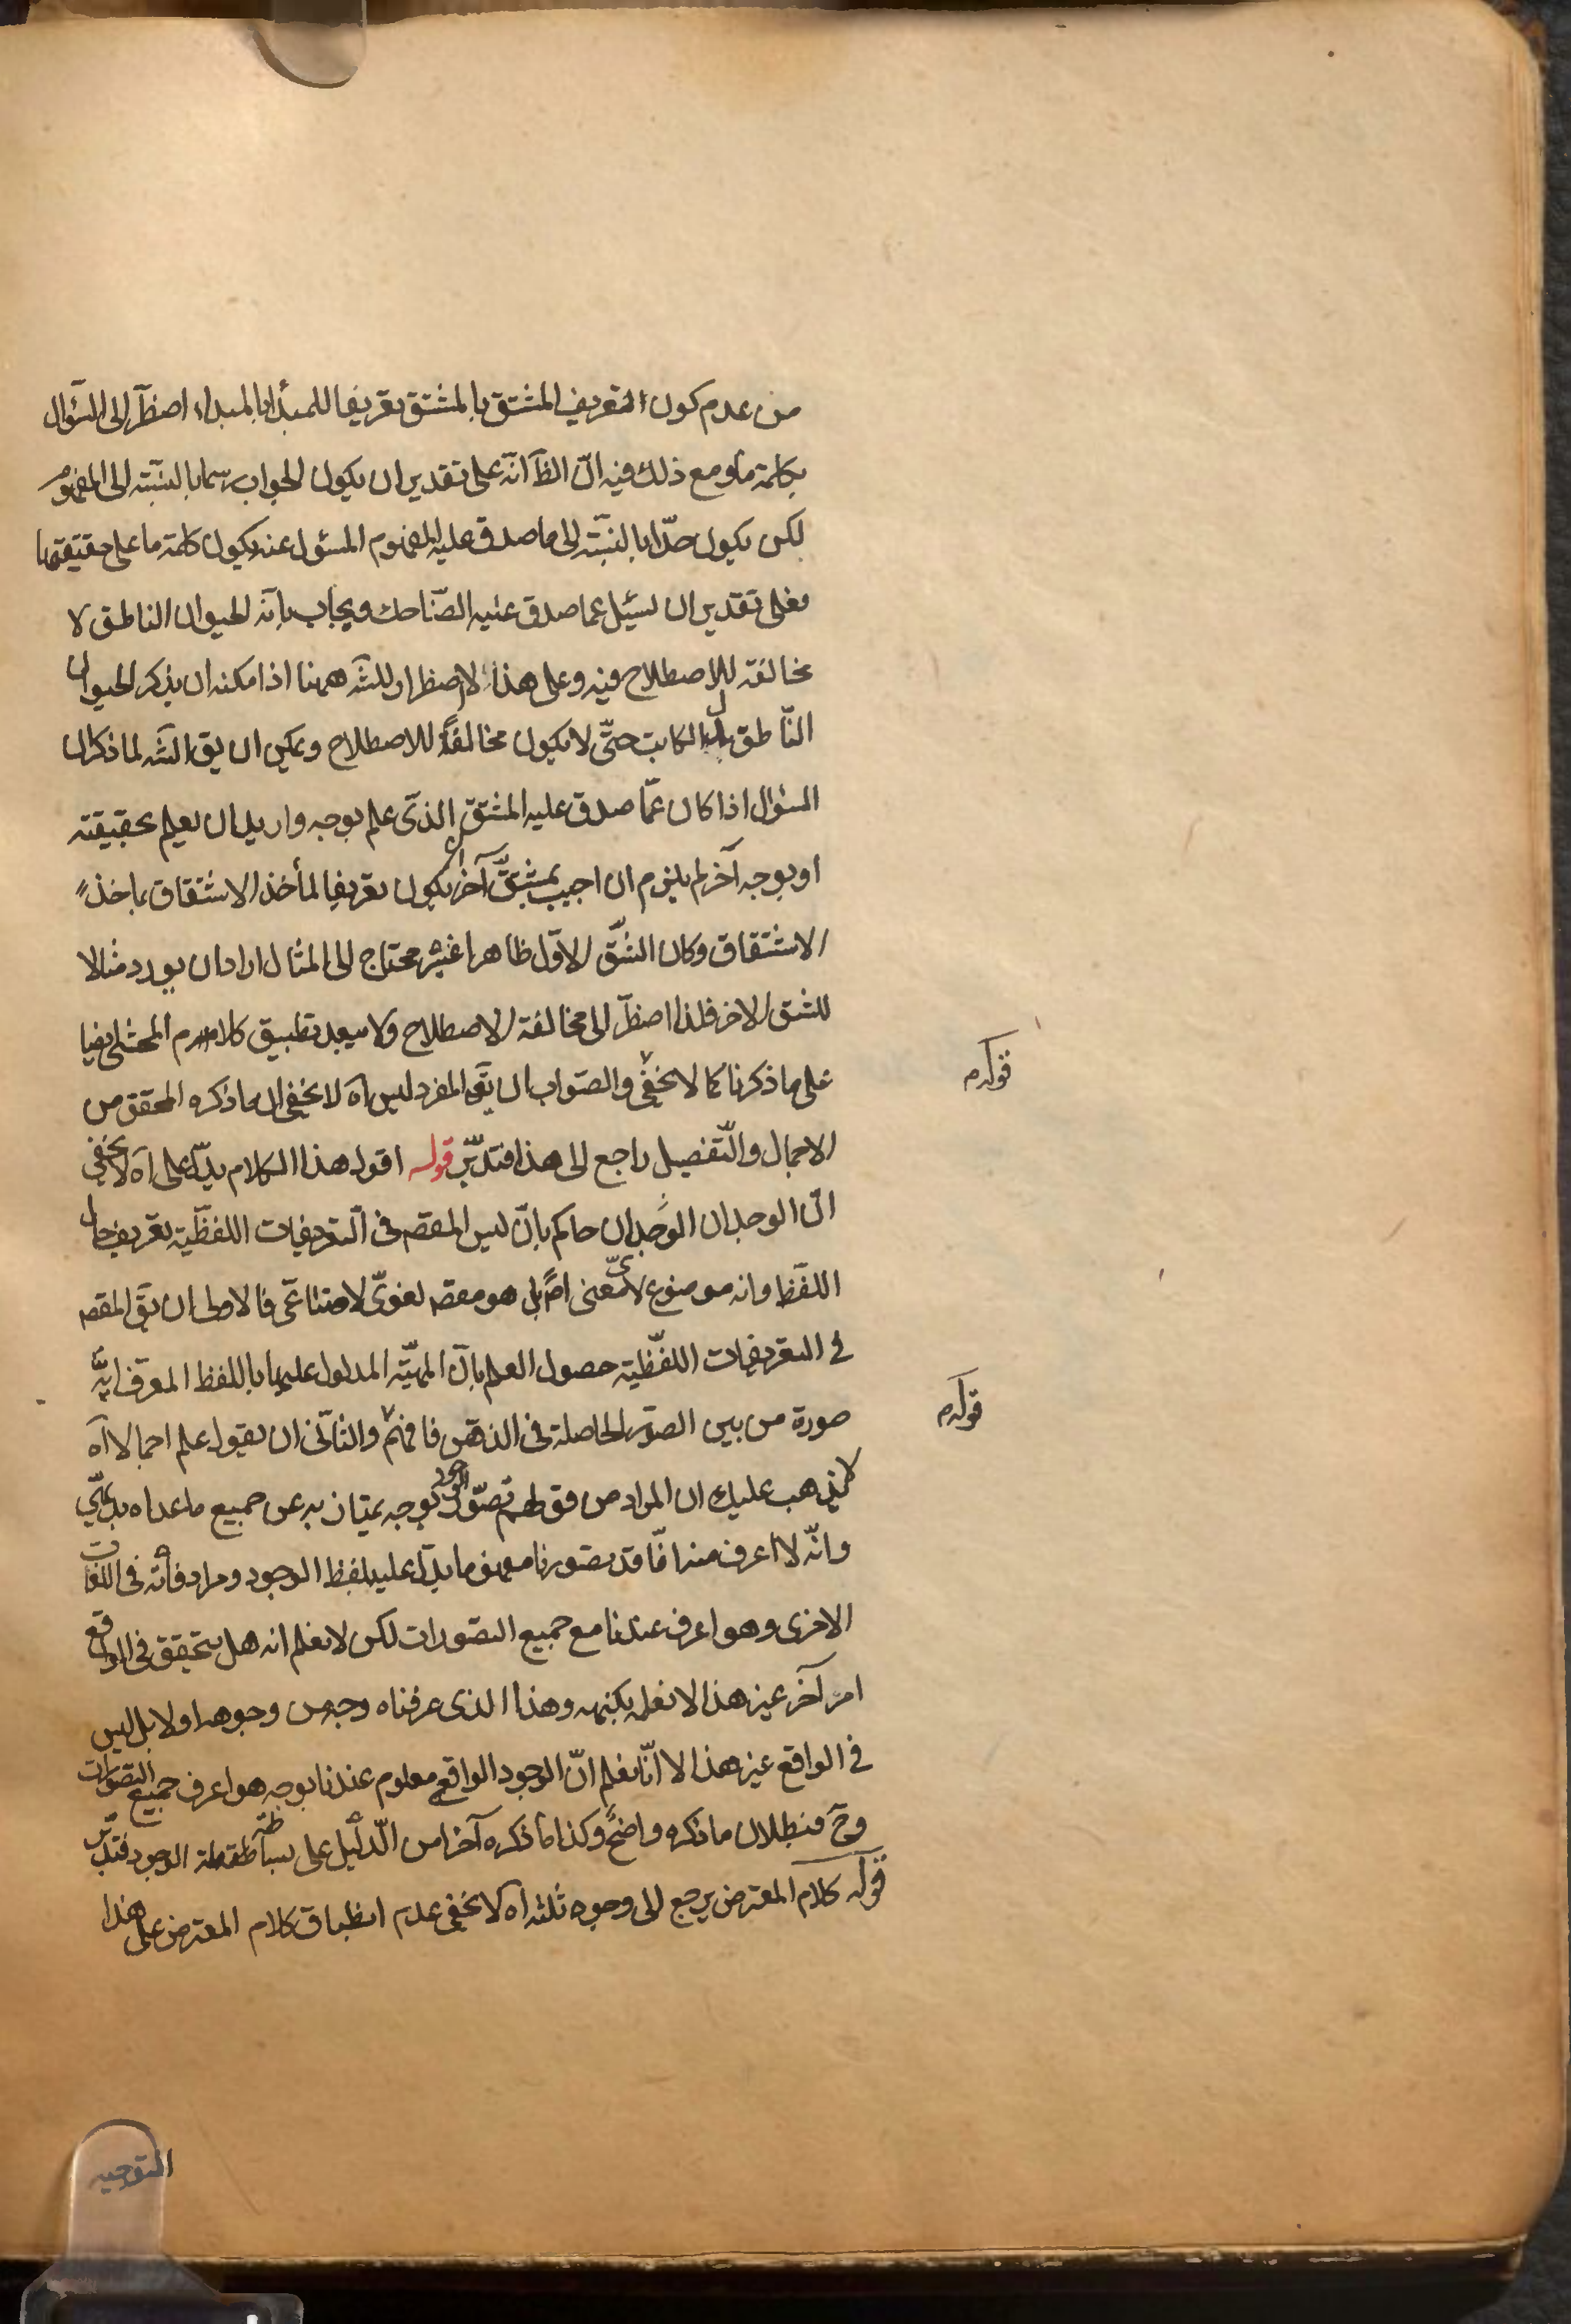 من عدم كون التعريف المشتق بالمشتق تعريفا للمبدأ بالمبداء اضطرّ الى السّؤال
بكلمة ما ومع ذلك فيه انّ الظآ انّه على تقدير ان يكون الجواب رسما بالنسبة الى المفهوم
لكن يكون حدّا بالنسبة الى ما صدق عليه المفهوم المسئول عنه يكون كلمة ما على حقيقتها
فعلى تقدير ان لسئيل عما صدق عليه الضّاحك ويجاب بانّه الحيوان الناطق لا
مخالفة للاصطلاح فيه وعلى هذا لا اضطرار للشّه ههنا اذا مكنه ان يذكر الحيوان
النّاطق بدل الكاتب حتّى لا يكون مخالفةً للاصطلاح ويمكن ان يق الشّه لما ذكر ان
السؤال اذا كان عمّا صدق عليه المشتقّ الذى علم بوجه واريد ان يعلم بحقيقته
او بوجه آخر لم يلزم ان اجيب بمشتقّ آخر ان يكون تعريفا لمأخذ الاشتقاق بماخذ
الاشتقاق وكان الشّق الاوّل ظاهرا غير محتاج الى المثال اراد ان يورد مثالا
للشق الاخر فلذا اضطرّ الى مخالفة الاصطلاح ولا يبعد تطبيق كلام المحشى ايضا
على ما ذكرنا كما لا يخفى والصّواب ان يقى المفرد ليس آه لا يخفى ان ما ذكره المحقق من
الاجمال والتّفصيل راجع الى هذا فتدبّر قوله اقول هذا الكلام يدلّ على آه لا يخفى
انّ الوجدان الوجدان حاكم بانّ ليس المقصه فى التعريفات اللفظّية تعريف حال
اللفظ وانه موضوع لاىّ معنى اصً بل هو مقصه لغوىّ لا صناعّى فالاولى ان يقى المقصه
فى التعريفات اللفّظية حصول العلم بانّ المهيّة المدلول عليها باللفظ المعرّف ايّة
صورة من بين الصوّر الحاصلة فى الذهن فافهم والثانى ان يقول علم اجمالا آه
لا يذهب عليك ان المراد من قولهم تصوّر الوجود بوجه يمتاز به عن جميع ما عداه بديهّى
وانّه لا اعرف منه انّا قد تصورنا مفهوم ما يدلّ عليه لفظ الوجود ومرادفاته فى اللغات
الاخرى وهو اعرف عندنا مع جميع التصورات لكن لا نعلم انه هل يتحقق فى الواقع
امر آخر غير هذا لا نعلمه بكنهه وهذا الذى عرفناه وجه من وجوهه او لا بل ليس
فى الواقع غير هذا الا انّا نعلم انّ الوجود الواقع معلوم عندنا بوجه هو اعرف جميع التصورات
وحٓ فبطلان ما ذكره واضحً وكذا ما ذكره آخرا من الدّليل على بساطة الوجود فتدبّر
قوله كلام المعترض يرجع الى وجوه ثلثه آه لا يخفى عدم انطباق كلام المعترض على هذا
قوله م
قوله م
التوجيه